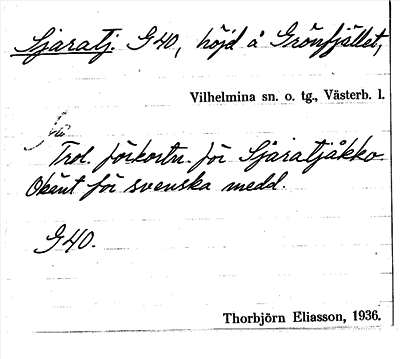 Sjaratj. G 40, höjd å Grönfjället,
Vilhelmina sn. o. tg., Västerb. l.
Trol. förkortn. för Sjaratjåkko.
Okänt för svenska medd.
G 40.
Thorbjörn Eliasson, 1936.